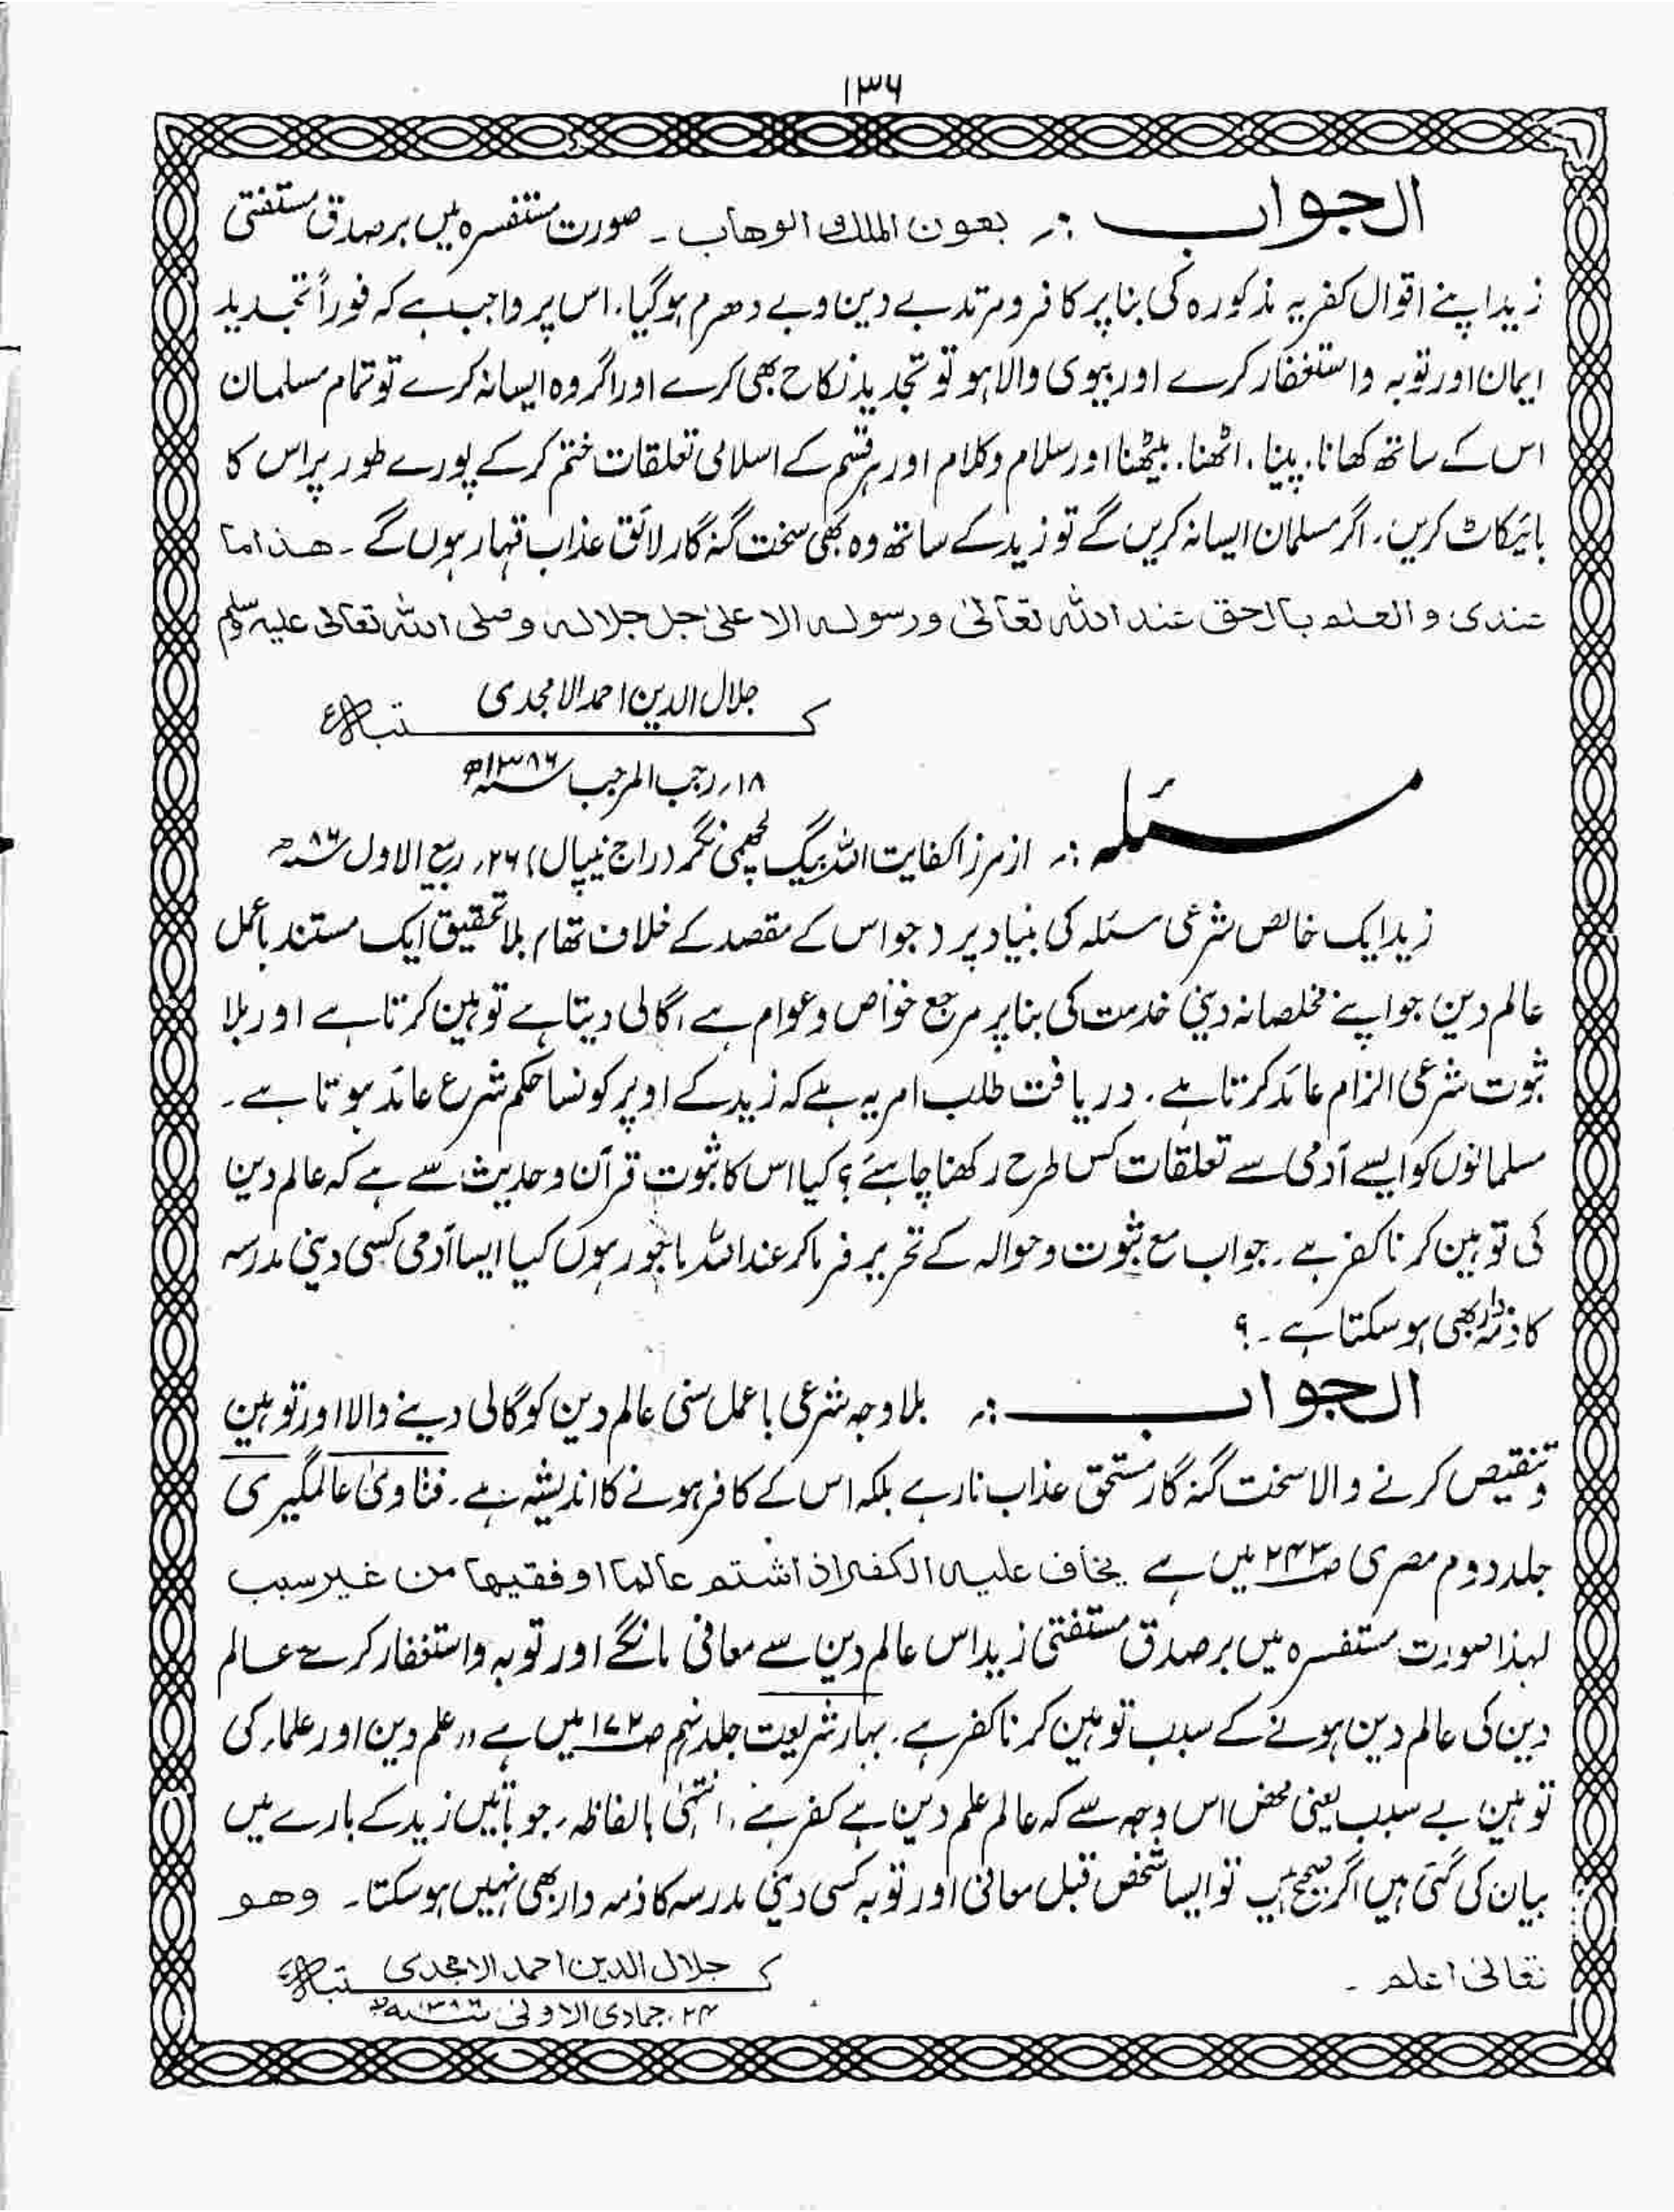 ۱۳۶
الجواب :۔ بعون الملک الوھاب ۔ صورت مستفسرہ میں بر صدق مستفتی
زید اپنے اقوال کفریہ مذکورہ کی بنا پر کافر و مرتد بے دین و بے دھرم ہوگیا، اس پر واجب ہے کہ فوراً تجدید
ایمان اور توبہ و استغفار کرے اور بیوی والا ہو تو تجدید نکاح بھی کرے اور اگر وہ ایسا نہ کرے تو تمام مسلمان
اس کے ساتھ کھانا، پینا، اٹھنا، بیٹھنا اور سلام و کلام اور ہر قسم کے اسلامی تعلقات ختم کرکے پورے طور پر اس کا
بائیکاٹ کریں، اگر مسلمان ایسا نہ کریں گے تو زید کے ساتھ وہ بھی سخت گنہ گار لائق عذاب قہار ہوں گے ۔ ھذا ما
عندی و العلم بالحق عند اللہ تعالیٰ و رسولہ الاعلیٰ جل جلالہ وصلی اللہ تعالی علیہ وسلم
جلال الدین احمد الامجدی
کتبہ
۱۸؍ رجب المرجب ۱۳۸۶ھ
مسئلہ :۔ از مرزا کفایت اللہ بیگ لچھمی نگر (راج نیپال) ۲۶؍ ربیع الاول ۸۶ھ
زید ایک خالص شرعی مسئلہ کی بنیاد پر (جو اس کے مقصد کے خلاف تھا) بلا تحقیق ایک مستند باعمل
عالم دین جو اپنے مخلصانہ دینی خدمت کی بنا پر مرجع خواص و عوام ہے، گالی دیتا ہے توہین کرتا ہے اور بلا
ثبوت شرعی الزام عائد کرتا ہے، دریافت طلب امر یہ ہے کہ زید کے اوپر کونسا حکم شرع عائد ہوتا ہے ۔
مسلمانوں کو ایسے آدمی سے تعلقات کس طرح رکھنا چاہئے؟ کیا اس کا ثبوت قرآن و حدیث سے ہے کہ عالم دین
کی توہین کرنا کفر ہے ۔ جواب مع ثبوت و حوالہ کے تحریر فرما کر عند اللہ ماجور ہوں کیا ایسا آدمی کسی دینی مدرسہ
کا ذمہ دار بھی ہو سکتا ہے ۔ ؟
الجواب :۔ بلا وجہ شرعی باعمل سنی عالم دین کو گالی دینے والا اور توہین
و تنقیص کرنے والا سخت گنہ گار مستحق عذاب نار ہے بلکہ اس کے کافر ہونے کا اندیشہ ہے ۔ فتاویٰ عالمگیری
جلد دوم مصری ص۲۴۳ میں ہے یخاف علیہ الکفر اذا شتم عالما او فقیھا من غیر سبب
لہذا صورت مستفسرہ میں بر صدق مستفتی زید اس عالم دین سے معافی مانگے اور توبہ و استغفار کرے عالم
دین کی عالم دین ہونے کے سبب توہین کرنا کفر ہے، بہار شریعت جلد نہم ص۱۷۲ میں ہے ،، علم دین اور علماء کی
توہین بے سبب یعنی محض اس وجہ سے کہ عالم علم دین ہے کفر ہے، انتہیٰ بالفاظہ، جو باتیں زید کے بارے میں
بیان کی گئی ہیں اگر صحیح ہیں تو ایسا شخص قبل معافی اور توبہ کسی دینی مدرسہ کا ذمہ دار بھی نہیں ہوسکتا ۔ وھو
تعالیٰ اعلم ۔
جلال الدین احمد الامجدی
کتبہ
۲۴؍ جمادی الاولیٰ